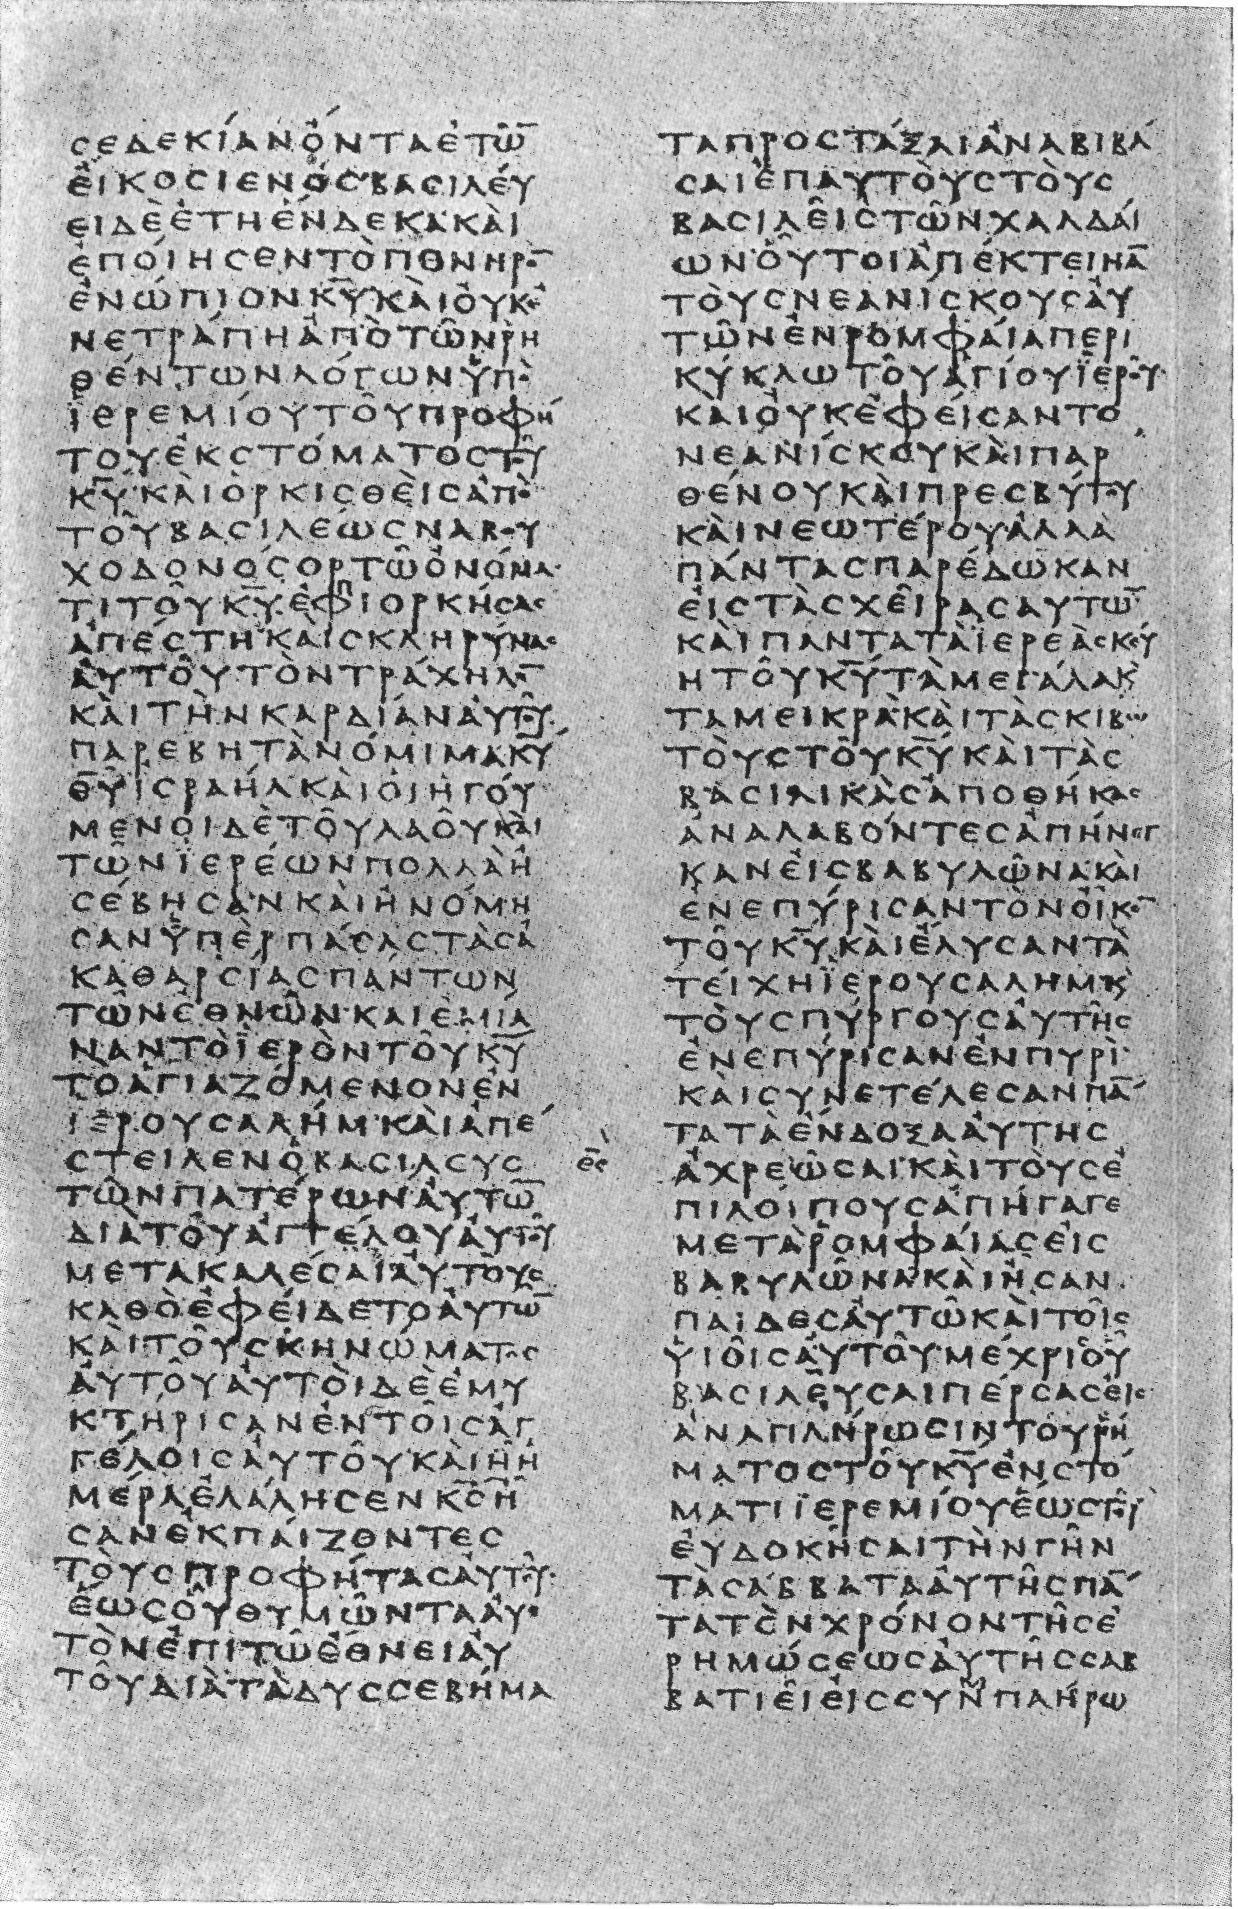 ϲεδεκίαν ὄντα ἐτῶ̅
εἴκοϲι ἑνόϲ· βαϲιλεύ
ει δὲ ἔτη ἕνδεκα· καὶ
ἐποίηϲεν τὸ πονηρο̅
ἐνώπιον κ̅υ̅· καὶ οὐκ ἐ
νετράπη ἀπὸ τῶν ῥη
θέντων λόγων ὑπὸ
ϊερεμίου τοῦ προφή
του ἐκ ϲτόματοϲ τοῦ
κ̅υ̅· καὶ ὁρκιϲθεὶϲ ἀπὸ
τοῦ βαϲιλέωϲ ναβου
χοδονοϲὸρ τῶ ὀνόμα
τι τοῦ κ̅υ̅· ἐφιορκήϲαϲ
ἀπέϲτη· καὶ ϲκληρύναϲ
αὐτοῦ τὸν τράχηλο̅
καὶ τὴν καρδίαν αὐτοῦ·
παρέβη τὰ νόμιμα κ̅υ̅
θ̅υ̅ ϊϲραήλ· καὶ οἱ ἡγού
μενοι δὲ τοῦ λαοῦ καὶ
τῶν ϊερέων πολλὰ ἠ
ϲέβηϲαν καὶ ἠνόμη
ϲαν ὑπὲρ πάϲαϲ τὰϲ ἀ
καθαρϲίαϲ πάντων
τῶν ἐθνῶν· καὶ ἐμία
ναν τὸ ϊερὸν τοῦ κ̅υ̅
τὸ ἁγιαζόμενον ἐν
ϊερουϲαλήμ· καὶ ἀπέ
ϲτειλεν ὁ βαϲιλευϲ
τῶν πατέρων αὐτῶ̅
διὰ τοῦ ἀγγέλου αὐτοῦ
μετακαλέϲαι αὐτοὺϲ
καθὸ ἐφείδετο αὐτῶ̅
καὶ τοῦ ϲκηνώματοϲ
αὐτοῦ· αὐτοὶ δὲ ἐμυ
κτήριϲαν ἐν τοῖϲ ἀγ
γέλοιϲ αὐτοῦ· καὶ ἧ ἡ
μέρα ἐλάληϲεν κ̅ϲ̅ ἦ
ϲαν ἐκπαίζοντεϲ
τοὺϲ προφήταϲ αὐτοῦ·
ἕωϲ οὗ θυμῶντα αὐ
τὸν ἐπὶ τῶ ἔθνει αὐ
τοῦ διὰ τὰ δυϲϲεβήμα
τα προϲτάξαι ἀναβιβά
ϲαι ἐπ αὐτοὺϲ τοὺϲ
βαϲιλεῖϲ τῶν χαλδαί
ων· οὗτοι ἀπέκτεινα̅
τοὺϲ νεανίϲκουϲ αὐ
τῶν ἐν ρομφαία περι
κύκλω τοῦ ἁγίου ϊεροῦ·
καὶ οὐκ ἐφείϲαντο
νεανίϲκου καὶ παρ
θένου καὶ πρεϲβύτου
καὶ νεωτέρου ἀλλὰ
πάνταϲ παρέδωκαν
εἰϲ τὰϲ χεῖραϲ αυτῶ̅
καὶ παντα τὰ ϊερεὰ ϲκεύ
η τοῦ κ̅υ̅ τὰ μεγάλα κὲ
τα μεικρὰ· καὶ τὰϲ κιβω
τοὺϲ τοῦ κ̅υ̅ καὶ τὰϲ
βαϲιλικὰϲ ἀποθήκαϲ
ἀναλαβόντεϲ ἀπήνεγ
καν εἰϲ βαβυλῶνα· καὶ
ἐνεπύριϲαν τὸν οἶκο̅
τοῦ κ̅υ̅· καὶ ἔλυϲαν τὰ
τείχη ϊερουϲαλημ κὲ
τοὺϲ πύργουϲ αὐτῆϲ
ἐνεπύριϲαν ἐν πυρὶ·
καὶ ϲυνετέλεϲαν πά̅
τα τὰ ἔνδοξα αὐτηϲ
ἀχρεῶϲαι· καὶ τοὺϲ ἐ
ἑ̅ϲ
πιλοίπουϲ ἀπήγαγε
μετὰ ρομφαίαϲ εἰϲ
βαβυλῶνα· καὶ ἦϲαν
παιδεϲ αὐτῶ καὶ τοῖϲ
ὑιοῖϲ αὐτοῦ· μέχρι οὗ
βαϲιλεῦϲαι πέρϲαϲ εἰϲ
ἀναπλήρωϲιν τοῦ ρή
ματοϲ τοῦ κ̅υ̅ ἐν ϲτό
ματι ϊερεμίου ἕωϲ τοῦ
εὐδοκῆϲαι τὴν γῆν
τὰ ϲάββατα αὐτῆϲ πά̅
τα τὸν χρόνον τῆϲ ἐ
ρημώϲεωϲ αὐτῆϲ ϲαβ
βατιεῖ εἰϲ ϲυνπλήρω